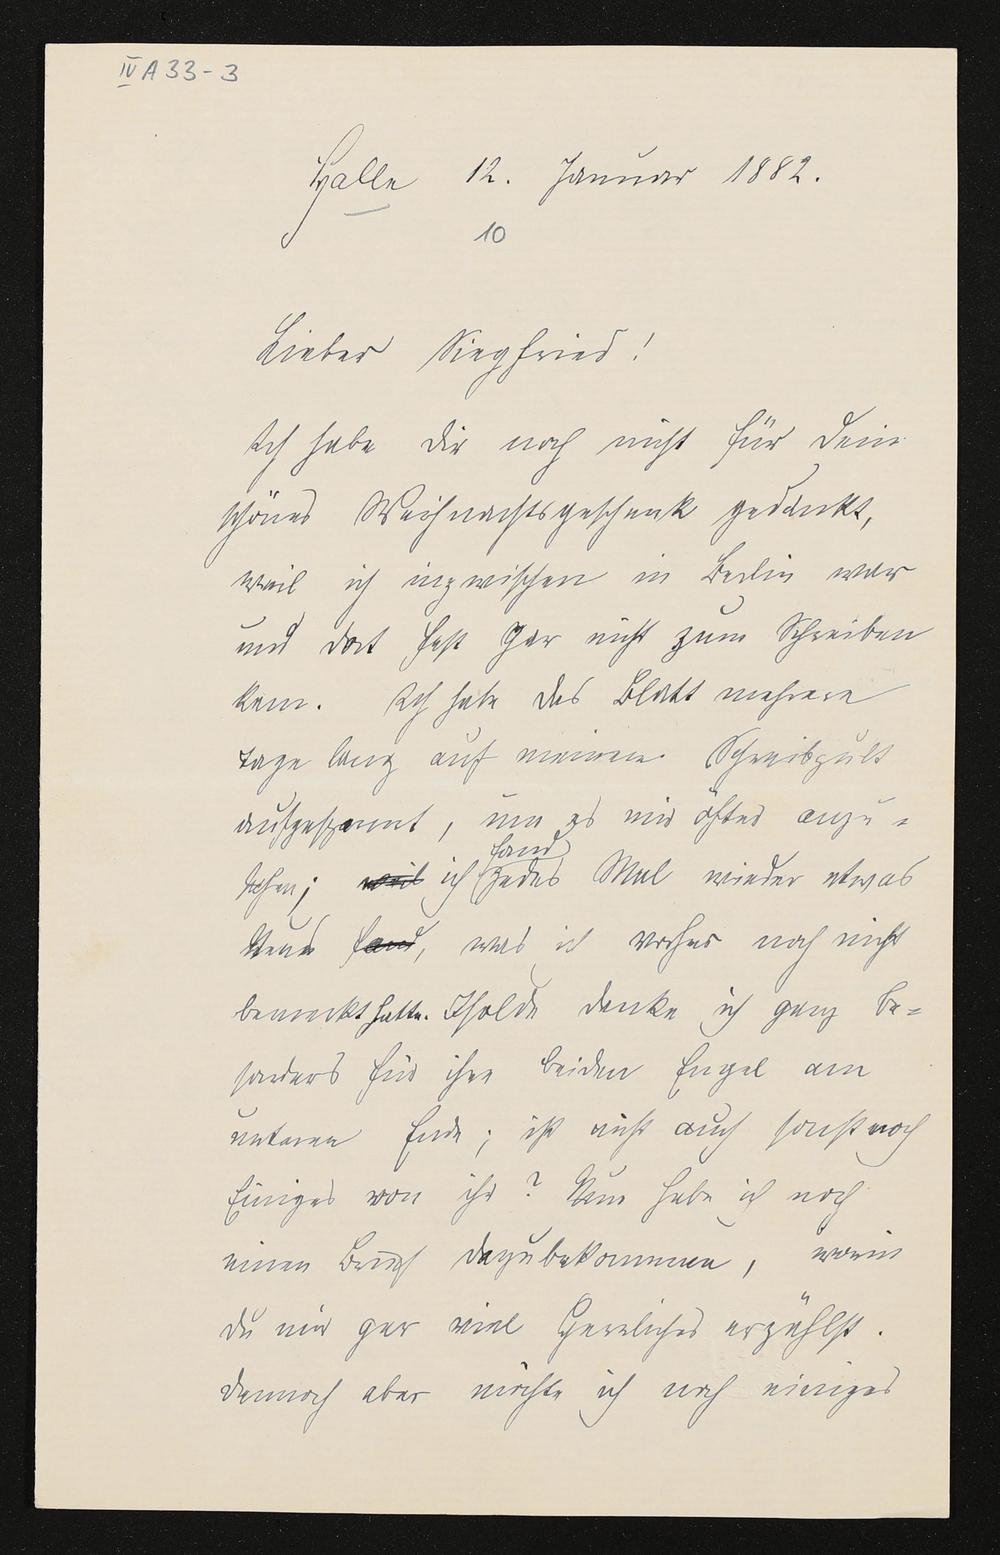 IV A 33-3
Halle 12. Januar 1882.
10
Lieber Siegfried!
Ich habe dir noch nicht für dein
schönes Weihnachtsgeschenk gedankt,
weil ich inzwischen in Berlin war
und dort fast gar nicht zum Schreiben
kam. Ich habe das Blatt mehrere
Tage lang auf meinem Schreibpult
aufgespannt, um es mir öfter anzu=
sehen; weil ich fand jedes Mal wieder etwas
Neues fand, was ich vorher noch nicht
bemerkt hatte. Isolde danke ich ganz be=
sonders für ihre beiden Engel am
unteren Ende; ist nicht auch sonst noch
Einiges von ihr? Nun habe ich noch
einen Brief dazubekommen, worin
du mir gar viel Herrliches erzählst.
Dennoch aber möchte ich noch einiges